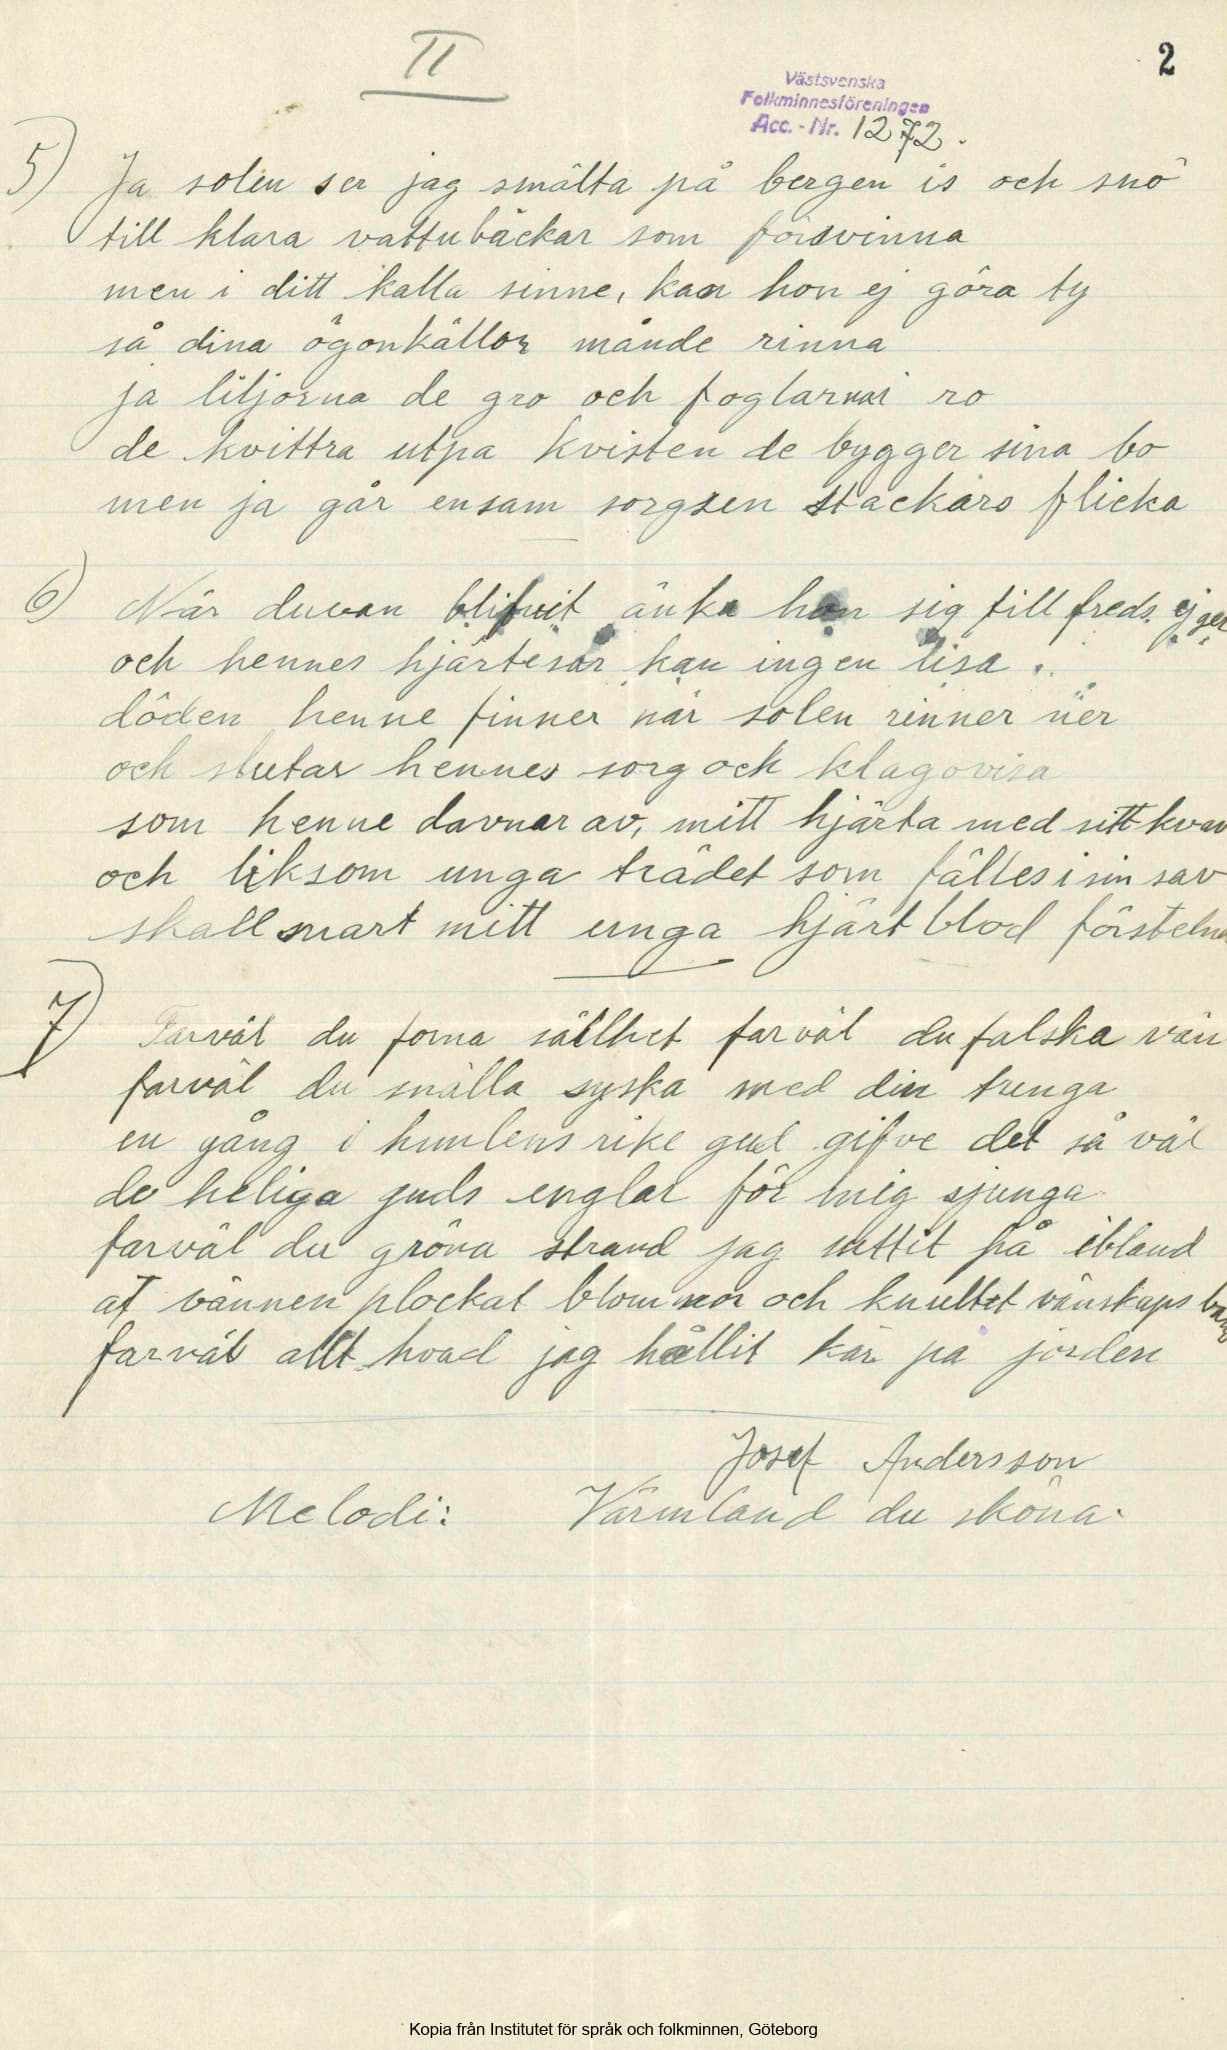 II
2
Västsvenska
Folkminnesföreningen
Acc.-Nr. 1272.
5) Ja solen ser jag smälta på bergen is och snö
till klara vattubäckar som försvinna
men i ditt kalla sinne, kan hon ej göra ty
så dina ögonkällor månde rinna
ja liljorna de gro och foglarna i ro
de kvittra utpa kvisten de bygger sina bo
men ja går ensam sorgsen stackars flicka
6) När duvan blifvit änka hon sig till freds ej ger
och hennes hjärtesår kan ingen lisa.
döden henne finner när solen rinner ner
och slutar hennes sorg och klagovisa
som henne davnar av, mitt hjärta med sitt kvav
och liksom unga trädet som fälles i sin sav
skall snart mitt unga hjärtblod förstelna
7) Farväl du forna sällhet farväl du falska vän
farväl du snälla syska med din tunga
en gång i himlens rike gud gifve det så väl
de heliga guds englar för mig sjunga
farväl du gröna strand jag suttit på ibland
at vännen plockat blommor och knultet vänskaps band
farväl allt hvad jag hållit kär pa jorden
Josef Andersson
Melodi: Värmland du sköna.
Kopia från Institutet för språk och folkminnen, Göteborg